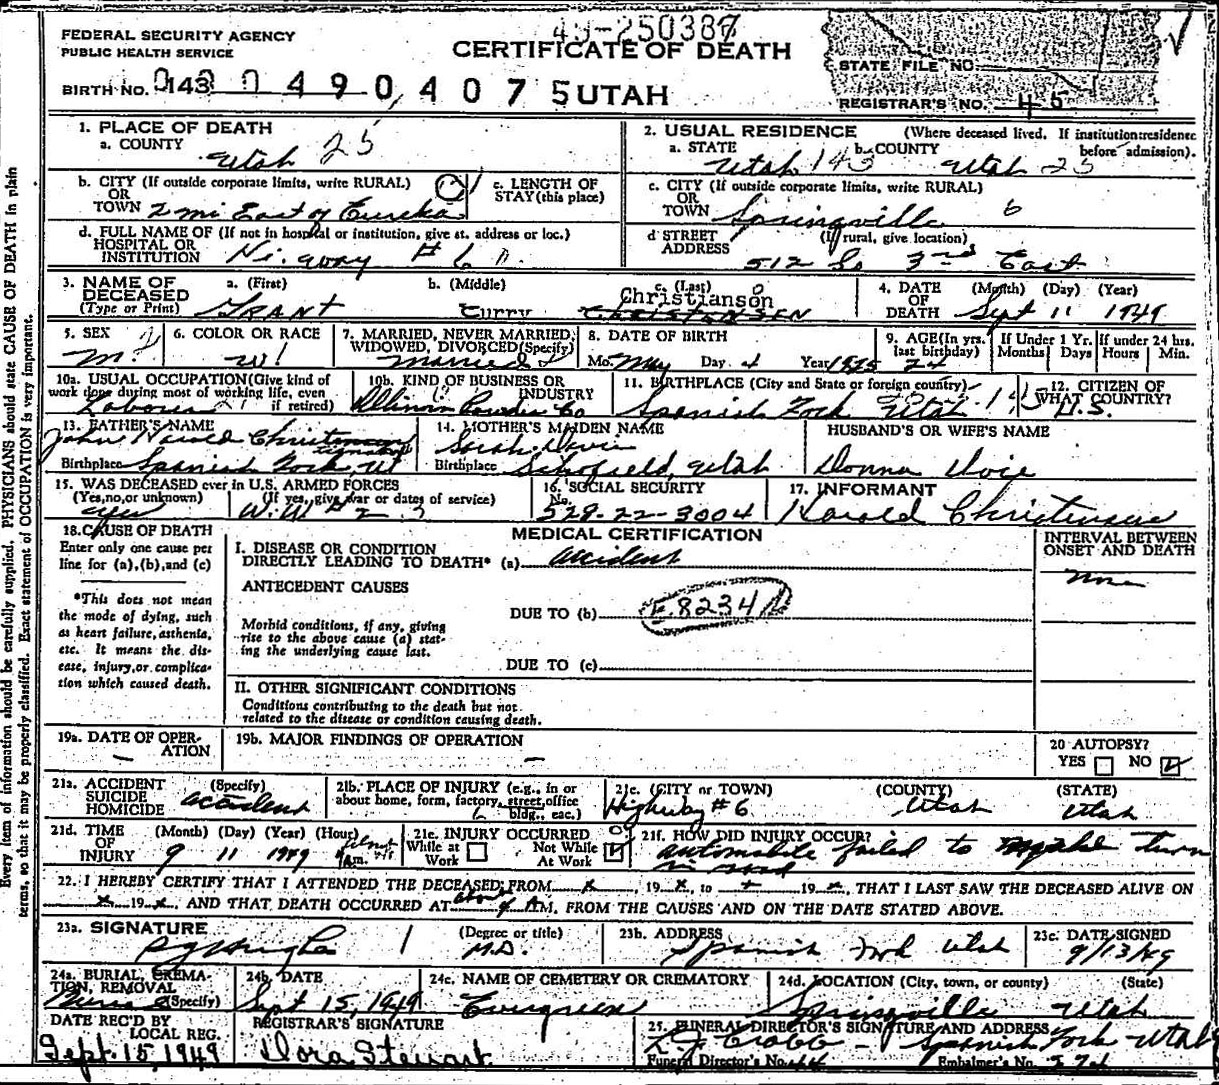 49-250387
FEDERAL SECURITY AGENCY
PUBLIC HEALTH SERVICE
CERTIFICATE OF DEATH
STATE FILE NO.
BIRTH NO. 143 0 4 9 0 4 0 7 5 UTAH
REGISTRAR'S NO. 45
Every item of information should be carefully supplied. PHYSICIANS should state CAUSE OF DEATH in plain
terms, so that it may be properly classified. Exact statement of OCCUPATION is very important.
1. PLACE OF DEATH
a. COUNTY
Utah 25
2. USUAL RESIDENCE (Where deceased lived. If institution: residence before admission).
a. STATE Utah 143 b. COUNTY Utah 25
b. CITY (If outside corporate limits, write RURAL)
OR
TOWN 2 mi East of Eureka
c. LENGTH OF
STAY (this place)
c. CITY (If outside corporate limits, write RURAL)
OR
TOWN Springville 6
d. FULL NAME OF (If not in hospital or institution, give st. address or loc.)
HOSPITAL OR
INSTITUTION Hi-way #6
d STREET (If rural, give location)
ADDRESS 512 So 3rd East
3. NAME OF DECEASED
(Type or Print)
a. (First) b. (Middle) c. (Last)
GRANT Curry Christianson
CHRISTENSEN
4. DATE OF DEATH (Month) (Day) (Year)
Sept 11 1949
5. SEX
M
6. COLOR OR RACE
W
7. MARRIED, NEVER MARRIED, WIDOWED, DIVORCED (Specify)
Married
8. DATE OF BIRTH
Mo. May Day 4 Year 1925
9. AGE (In yrs. last birthday) 24
If Under 1 Yr. Months Days
If under 24 hrs. Hours Min.
10a. USUAL OCCUPATION (Give kind of
work done during most of working life, even
if retired)
Laborer
10b. KIND OF BUSINESS OR
INDUSTRY
Illinois Powder Co
11. BIRTHPLACE (City and State or foreign country)
Spanish Fork Utah
12. CITIZEN OF
WHAT COUNTRY?
U.S.
13. FATHER'S NAME
John Harold Christensen
Birthplace Spanish Fork, Ut
14. MOTHER'S MAIDEN NAME
Sarah
Birthplace Schofield, Utah
HUSBAND'S OR WIFE'S NAME
Donna
15. WAS DECEASED ever in U.S. ARMED FORCES
(Yes, no, or unknown) (If yes, give war or dates of service)
yes W.W #2
16. SOCIAL SECURITY
No.
528-22-3004
17. INFORMANT
Harold Christensen
18. CAUSE OF DEATH
Enter only one cause per
line for (a), (b), and (c)
*This does not mean
the mode of dying, such
as heart failure, asthenia,
etc. It means the dis-
ease, injury, or complica-
tion which caused death.
MEDICAL CERTIFICATION
INTERVAL BETWEEN
ONSET AND DEATH
I. DISEASE OR CONDITION
DIRECTLY LEADING TO DEATH* (a) accident
None
ANTECEDENT CAUSES
DUE TO (b) E 8234
Morbid conditions, if any, giving
rise to the above cause (a) stat-
ing the underlying cause last.
DUE TO (c)
II. OTHER SIGNIFICANT CONDITIONS
Conditions contributing to the death but not
related to the disease or condition causing death.
19a. DATE OF OPER-
ATION
—
19b. MAJOR FINDINGS OF OPERATION
—
20 AUTOPSY?
YES NO
21a. ACCIDENT (Specify)
SUICIDE
HOMICIDE
accident
21b. PLACE OF INJURY (e.g., in or
about home, form, factory, street, office
bldg., eac.)
21c. (CITY or TOWN) (COUNTY) (STATE)
Highway #6 Utah Utah
21d. TIME OF INJURY (Month) (Day) (Year) (Hour)
9 11 1949 m.
21e. INJURY OCCURRED
While at Work
Not While At Work
21f. HOW DID INJURY OCCUR?
automobile failed to make turn
in road
22. I HEREBY CERTIFY THAT I ATTENDED THE DECEASED FROM x, 19 x, to x 19 x, THAT I LAST SAW THE DECEASED ALIVE ON
x 19 x, AND THAT DEATH OCCURRED AT about 4 A M. FROM THE CAUSES AND ON THE DATE STATED ABOVE.
23a. SIGNATURE (Degree or title)
M.D.
23b. ADDRESS
Spanish Fork Utah
23c. DATE SIGNED
9/13/49
24a. BURIAL, CREMA-
TION, REMOVAL
(Specify)
Burial
24b. DATE
Sept 15, 1949
24c. NAME OF CEMETERY OR CREMATORY
Evergreen
24d. LOCATION (City, town, or county) (State)
Springville Utah
DATE REC'D BY
LOCAL REG.
Sept. 15, 1949
REGISTRAR'S SIGNATURE
Dora Stewart
25. FUNERAL DIRECTOR'S SIGNATURE AND ADDRESS
Spanish Fork Utah
Funeral Director's No. 44 Embalmer's No.